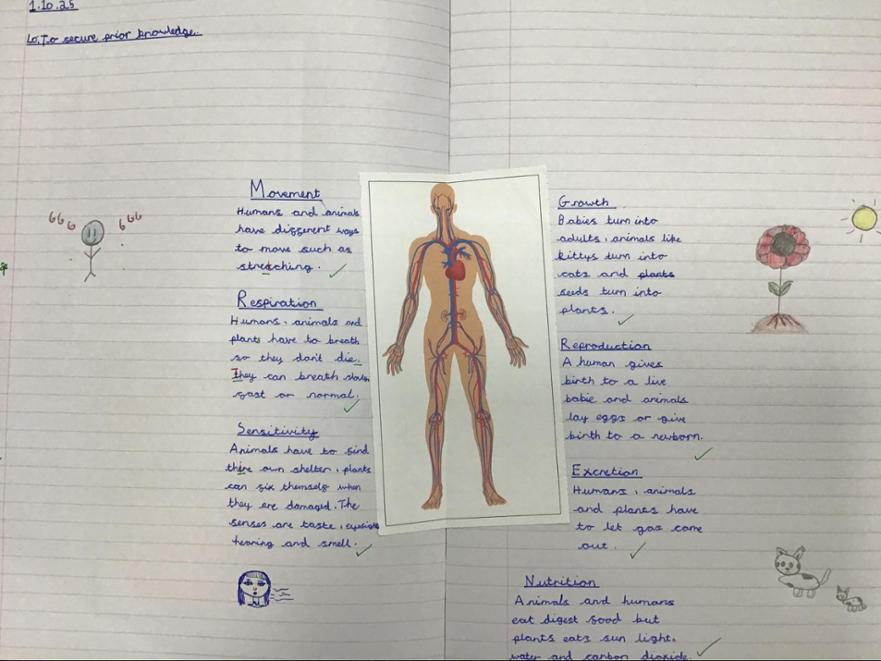 1.10.25
Lo.To secure prior knowledge.
Movement
Humans and animals
have different ways
to move such as
streching.
Respiration
Humans, animals and
plants have to breath
so they don't die.
They can breath slow,
fast or normal.
Sensitivity
Animals have to find
thire own shelter, plants
can fix themself when
they are damaged. The
senses are taste, eyesight
hearing and smell.
Growth
Babies turn into
adults, animals like
kittys turn into
cats and plants
seeds turn into
plants.
Reproduction
A human gives
birth to a live
babie and animals
lay eggs or give
birth to a newborn.
Excretion
Humans, animals
and plants have
to let gas come
out.
Nutrition
Animals and humans
eat digest food but
plants eats sun light,
water and carbon dioxide.